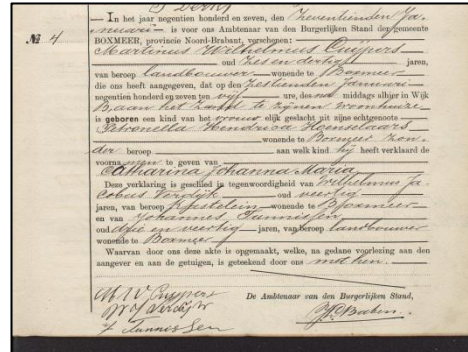 — In het jaar negentien honderd en zeven, den Zeventienden Ja-
nuari — is voor ons Ambtenaar van den Burgerlijken Stand, der gemeente
№ 4
BOXMEER, provincie Noord-Brabant, verschenen:
Martinus Wilhelmus Cuypers
oud Zes en dertig jaren,
van beroep landbouwer wonende te Boxmeer
die ons heeft aangegeven, dat op den zestienden Januari
negentien honderd en zeven ten vijf ure, des na middags alhier in Wijk
B, aan het Zand te zijnen woonhuize
is geboren een kind van het vrouwelijk geslacht uit zijne echtgenoote
Petronella Hendrica Hoenselaars
wonende te Boxmeer zon-
der beroep aan welk kind hij heeft verklaard de
voornamen te geven van
Catharina Johanna Maria
Deze verklaring is geschied in tegenwoordigheid van Wilhelmus Ja-
cobus Verdijk oud veertig
jaren, van beroep wonende te Boxmeer
en van Johannes Tunnissen
oud drie en veertig jaren, van beroep landbouwer
wonende te Boxmeer
Waarvan door ons deze akte is opgemaakt, welke, na gedane voorlezing aan den
aangever en aan de getuigen, is geteekend door ons met hen.
De Ambtenaar van den Burgerlijken Stand,
M W Cuypers
W J Verdijk
J Tunnissen